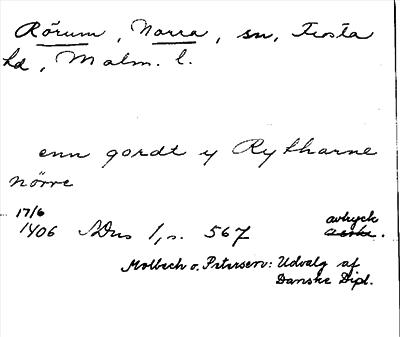 Rörum, Norra, sn, Frosta
hd, Malm. l.
enn gordt y Rytharne
nörre
17/6
1406 SDns 1, s. 567 avtryck
Molbech o. Petersen: Udvalg af
Danske Dipl.